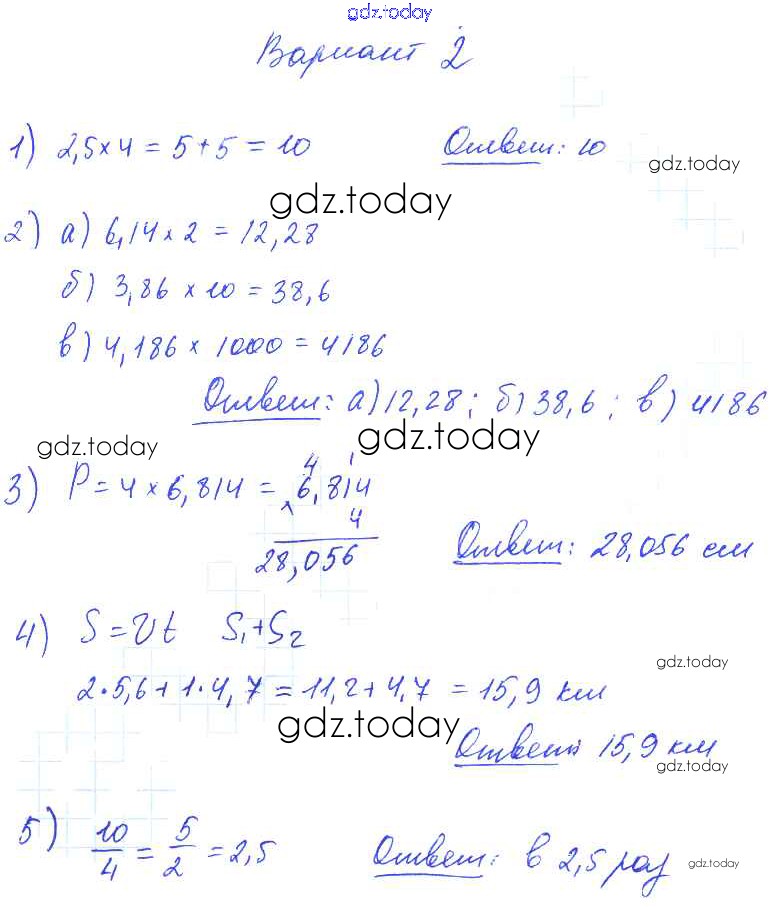 gdz.today
Вариант 2
1) 2,5 × 4 = 5 + 5 = 10 Ответ: 10
gdz.today
gdz.today
2) а) 6,14 × 2 = 12,28
б) 3,86 × 10 = 38,6
в) 4,186 × 1000 = 4186
Ответ: а) 12,28; б) 38,6; в) 4186
gdz.today gdz.today
4 1
3) P = 4 × 6,814 = × 6,814
4
28,056 Ответ: 28,056 см
4) S = Vt S₁ + S₂
gdz.today
2 · 5,6 + 1 · 4,7 = 11,2 + 4,7 = 15,9 км
gdz.today
Ответ: 15,9 км
gdz.today
5) 10/4 = 5/2 = 2,5 Ответ: в 2,5 раз
gdz.today